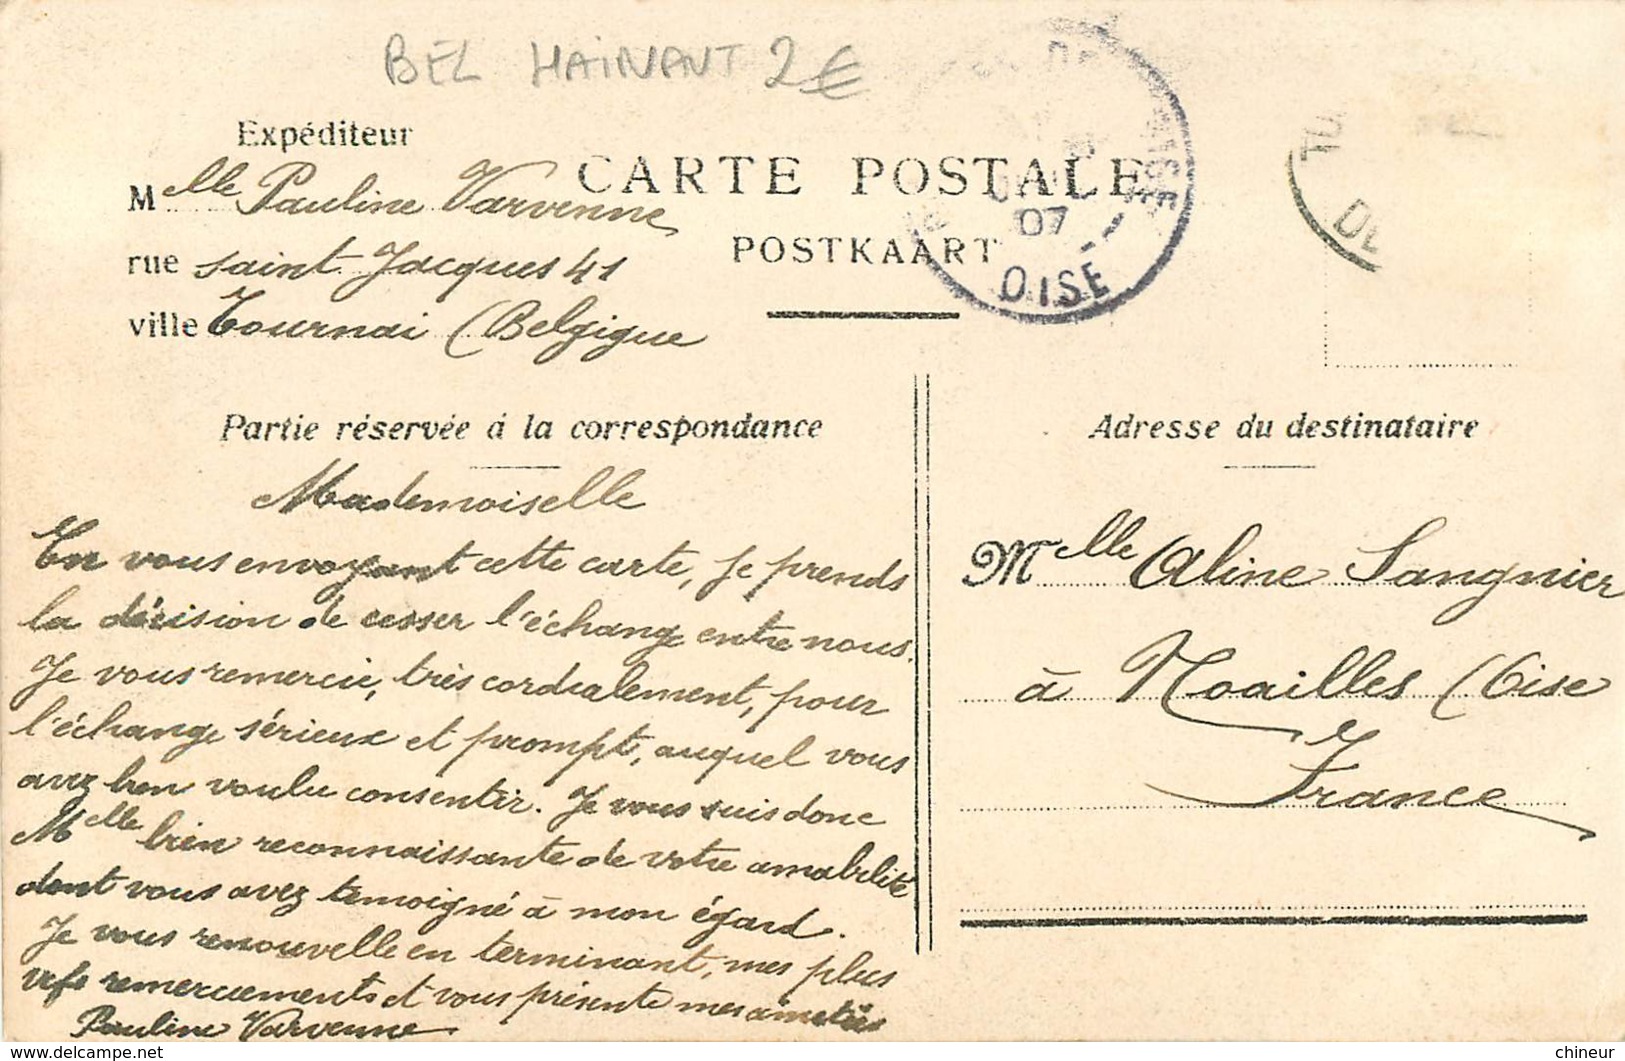 BEL HAINANT 2€
Expéditeur
CARTE POSTALE
POSTKAART
Melle Pauline Varvenne
rue saint Jacques 41
ville Tournai (Belgique
07
OISE
TU
DE
Partie réservée à la correspondance
Mademoiselle
En vous envoyant cette carte, je prends
la décision de cesser l'échange entre nous.
Je vous remercie, très cordialement, pour
l'échange sérieux et prompt, auquel vous
avez bien voulu consentir. Je vous suis donc
Melle bien reconnaissante de votre amabilité
dont vous avez témoigné à mon égard.
Je vous renouvelle en terminant, mes plus
vifs remerciements et vous présente mes amitiés
Pauline Varvenne
Adresse du destinataire
Melle Aline Sangnier
à Noailles (Oise
France
chineur
delcampe.net